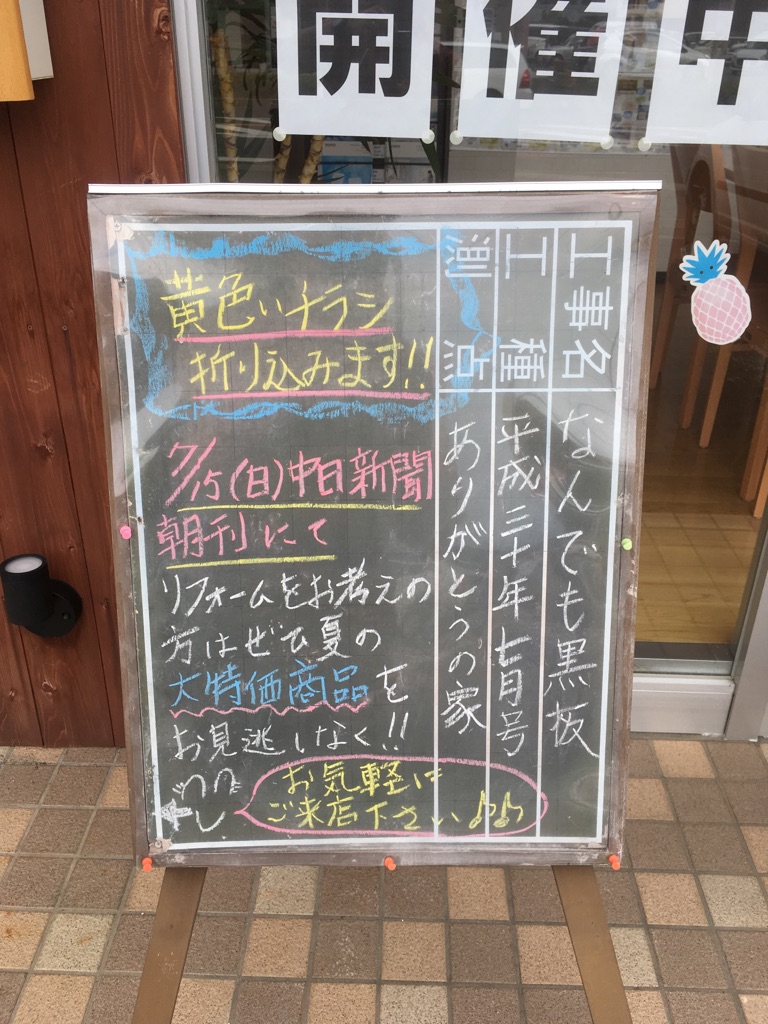 開催中
工事名 なんでも黒板
工種 平成三十年七月号
測点 ありがとうの家
黄色いチラシ
折り込みます!!
7/15(日)中日新聞
朝刊にて
リフォームをお考えの
方はぜひ夏の
大特価商品を
お見逃しなく!!
お気軽に
ご来店下さい♪♪